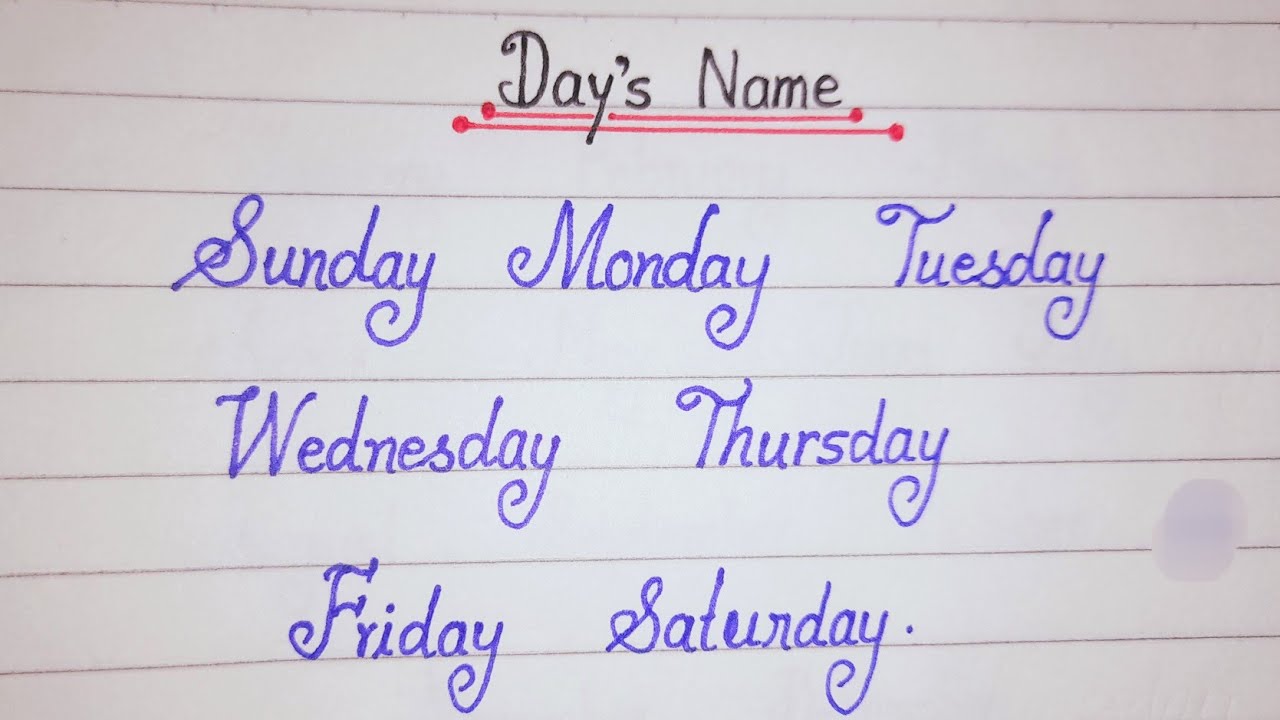 Day's Name
Sunday Monday Tuesday
Wednesday Thursday
Friday Saturday.